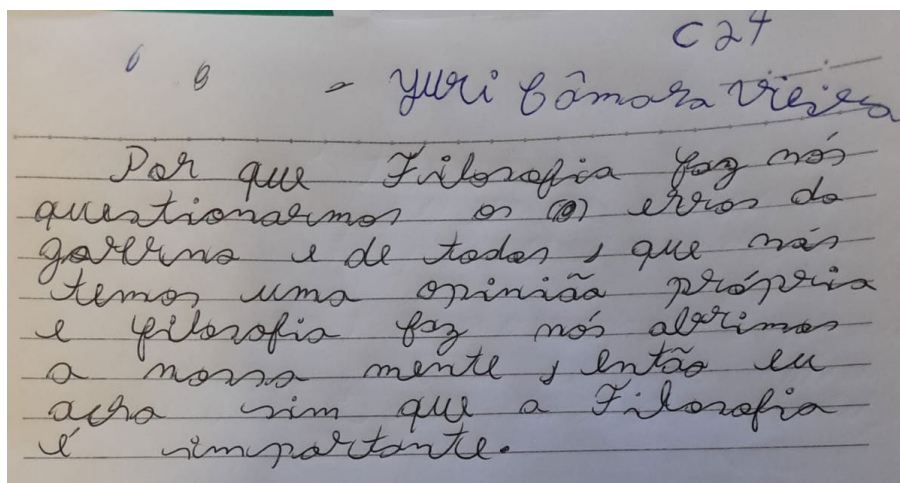 C24
- Yuri Câmara Vieira
Por que Filosofia faz nós
questionarmos os (o) erros do
governo e de todos, que nós
temos uma opinião própria
e filosofia faz nós abrimos
a nossa mente, então eu
acho sim que a Filosofia
é importante.